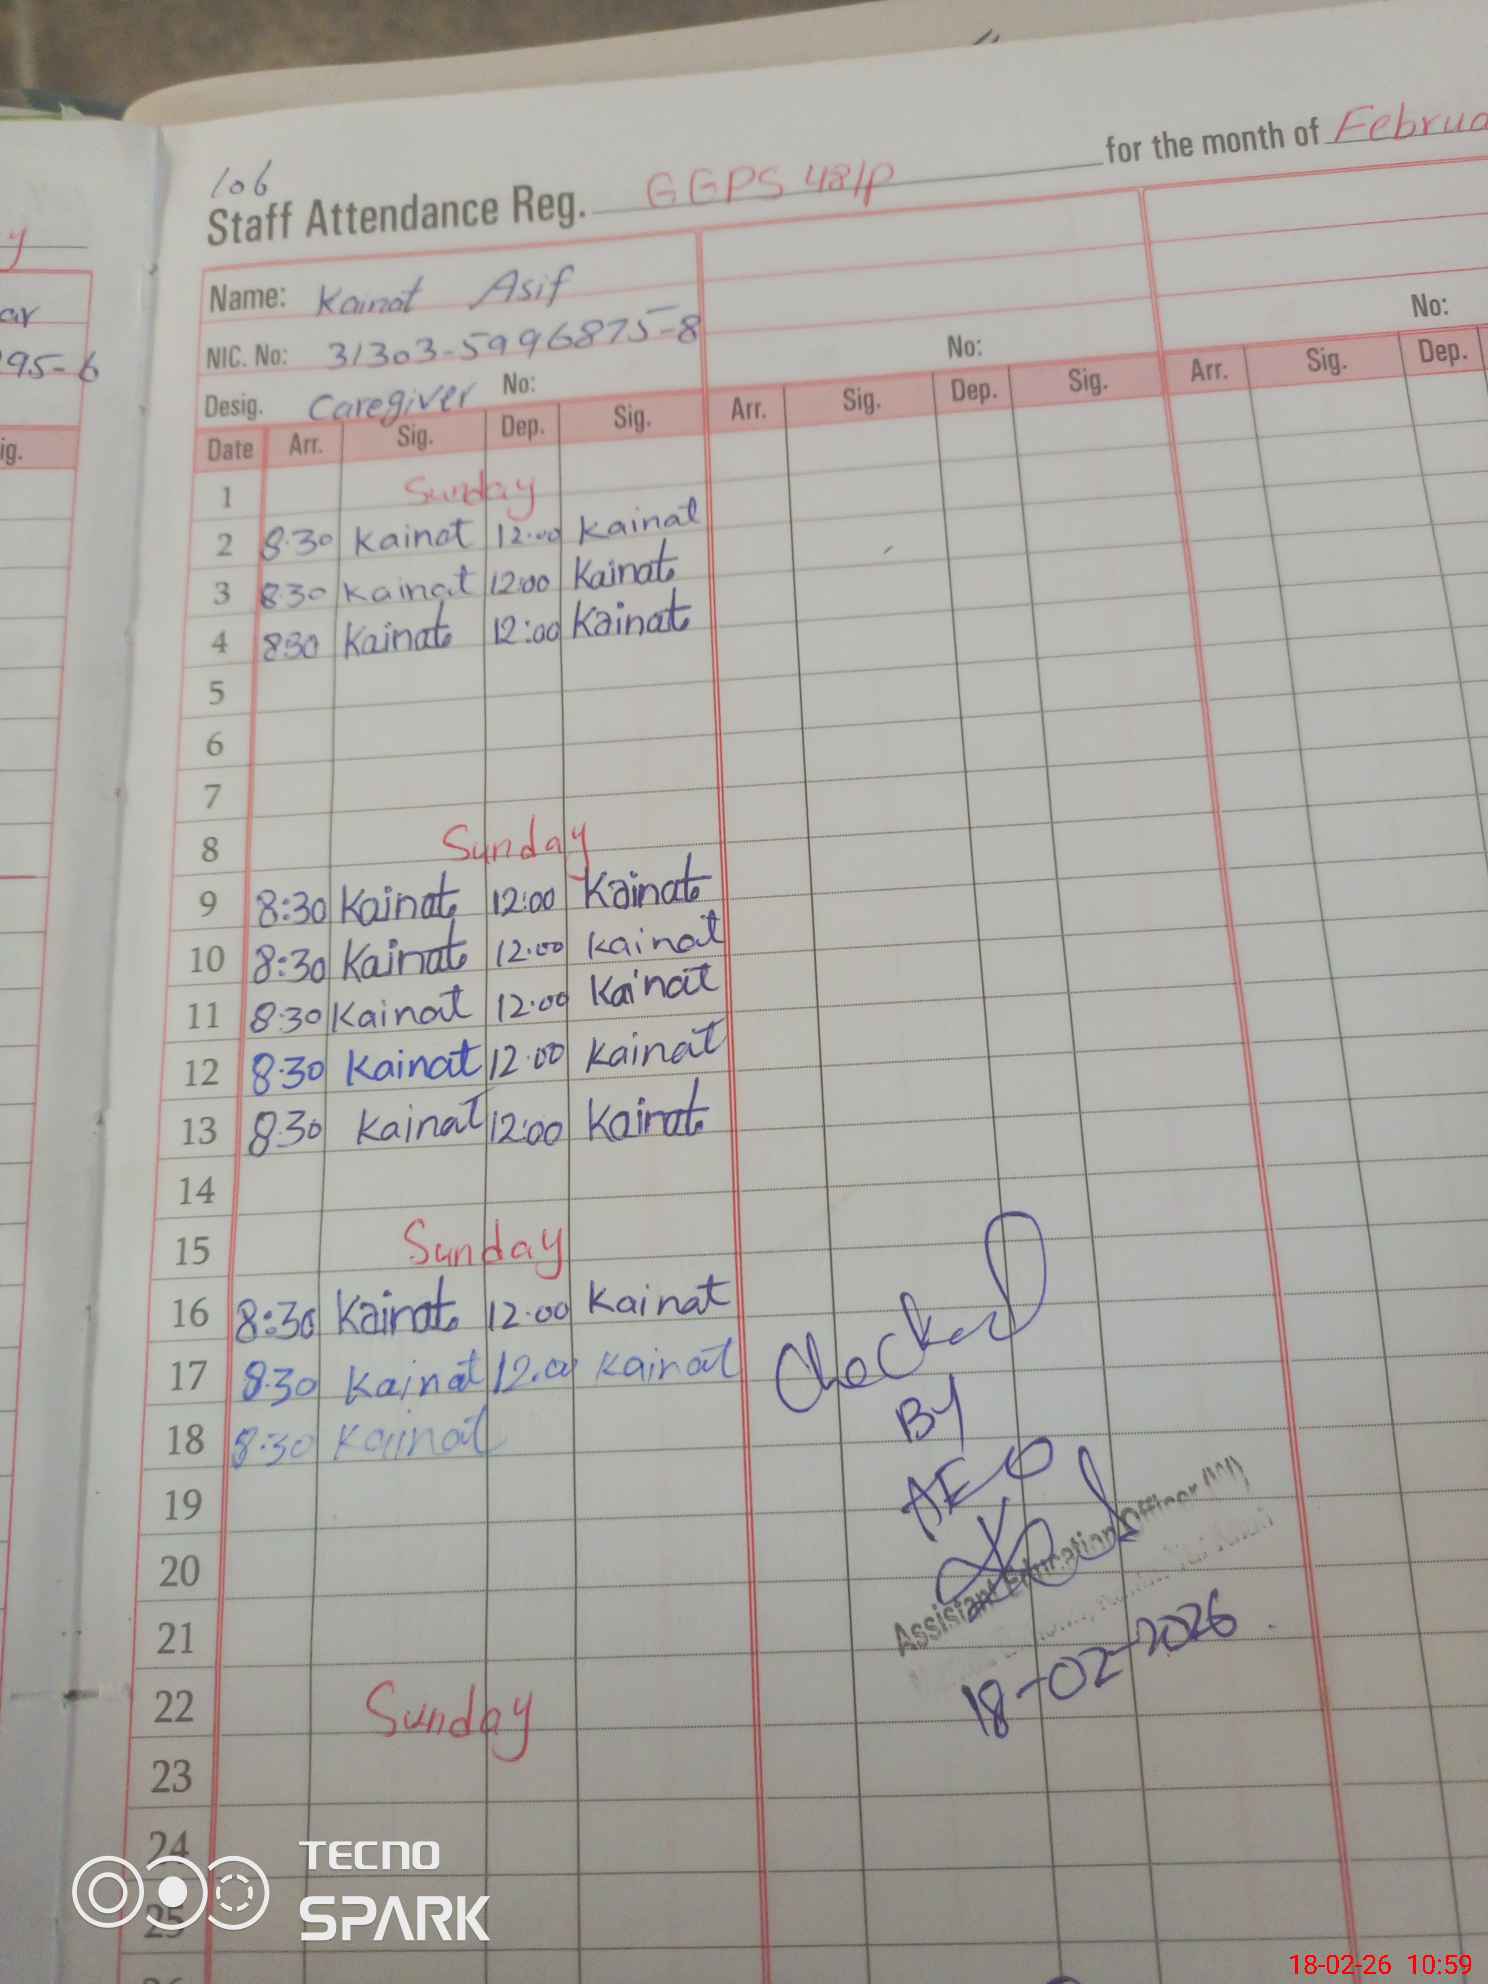 y
ar
95-6
ig.
106
Staff Attendance Reg. GGPS 48/P for the month of Februa
Name: Kainat Asif
NIC. No: 31303-5996875-8
Desig. Caregiver No: No: No:
Date Arr. Sig. Dep. Sig. Arr. Sig. Dep. Sig. Arr. Sig. Dep.
1 Sunday
2 8.30 Kainat 12.00 Kainat
3 8.30 Kainat 12:00 Kainat
4 830 Kainat 12:00 Kainat
5
6
7
8 Sunday
9 8:30 Kainat 12:00 Kainat
10 8:30 Kainat 12.00 Kainat
11 8.30 Kainat 12.00 Kainat
12 8.30 Kainat 12.00 Kainat
13 8.30 Kainat 12:00 Kainat
14
15 Sunday
16 8:30 Kainat 12.00 Kainat
17 8.30 Kainat 12.00 Kainat
18 8.30 Kainat
19
20
21
22 Sunday
23
24
25
Checked
By
AEO
Assistant Education Officer (W)
18-02-2026
TECNO
SPARK
18-02-26 10:59